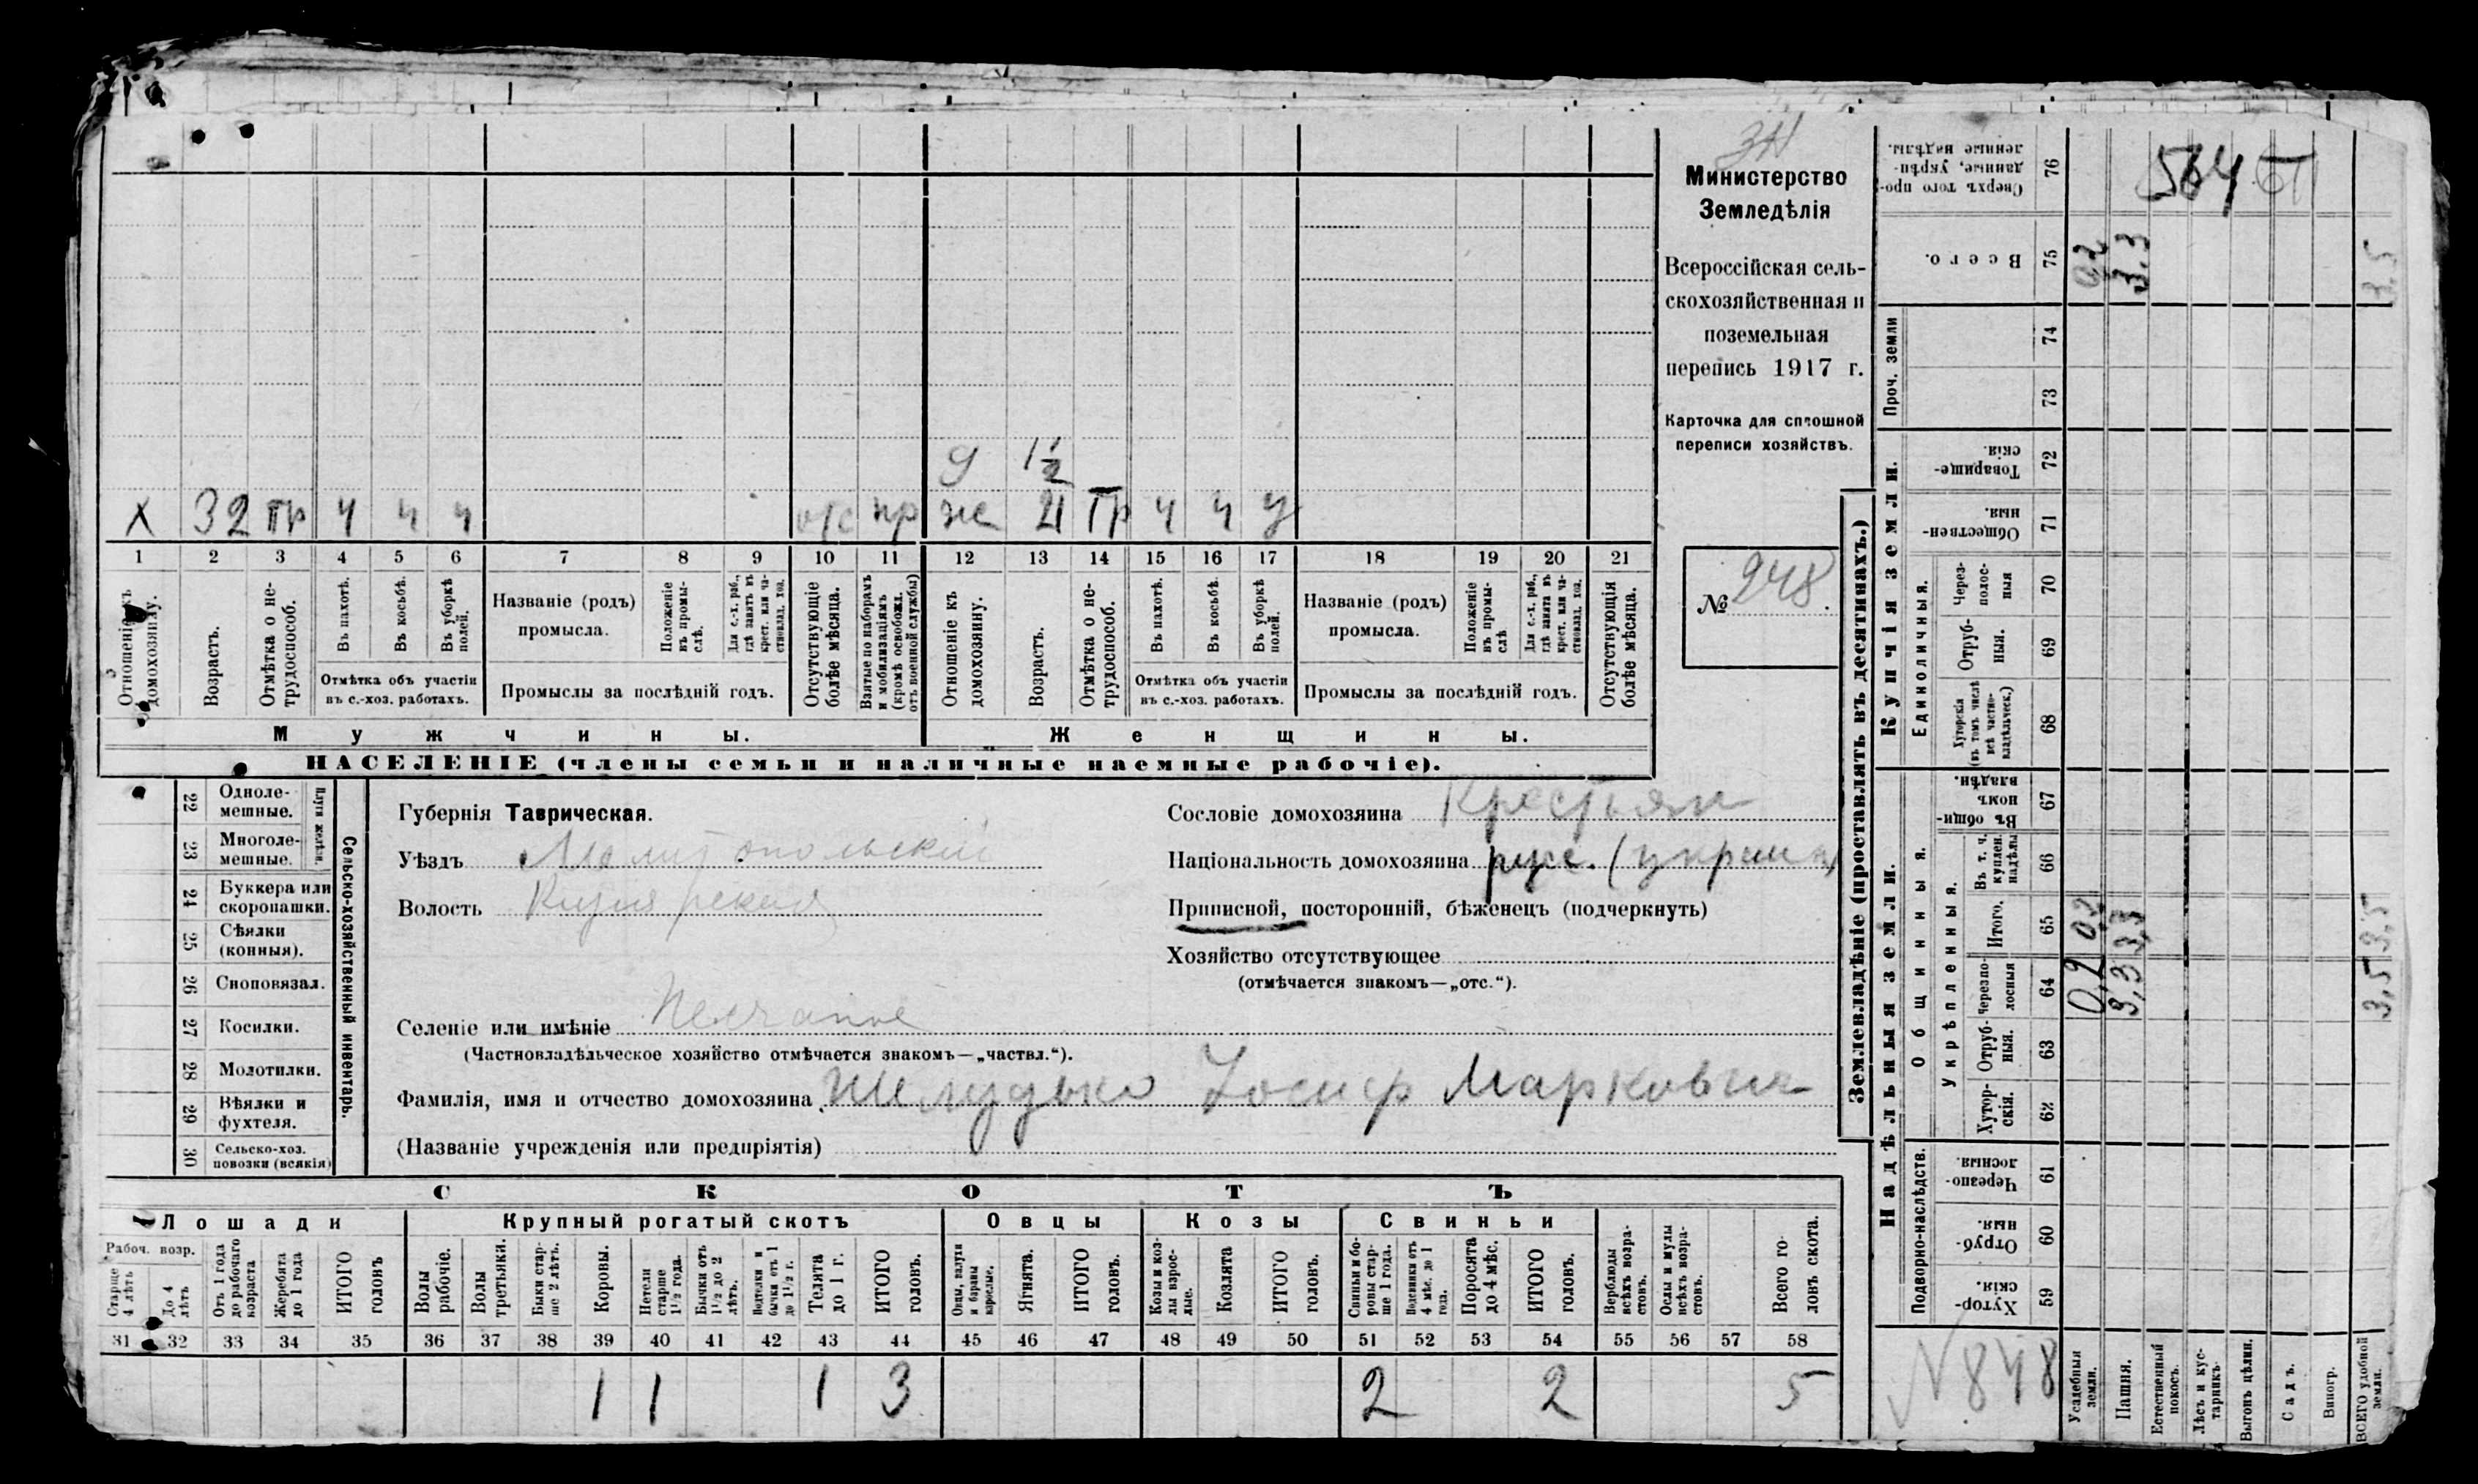 Министерство
Земледѣлія
Всероссійская сель-
скохозяйственная и
поземельная
перепись 1917 г.
Карточка для сплошной
переписи хозяйствъ.
№ 248.
У 1½
Х 32 тр ч ч ч отс пр ж 21 тр ч ч у
1 2 3 4 5 6 7 8 9 10 11 12 13 14 15 16 17 18 19 20 21
Отношеніе къ домохозяину.
Возрастъ.
Отмѣтка о не-трудоспособ.
Въ пахотѣ.
Въ косьбѣ.
Въ уборкѣ полей.
Отмѣтка объ участіи
въ с.-хоз. работахъ.
Названіе (родъ)
промысла.
Положеніе въ промы-слѣ.
Для с.-х. раб., гдѣ занятъ въ крест. или ча-стновлад. хоз.
Промыслы за послѣдній годъ.
Отсутствующіе болѣе мѣсяца.
Взятые по наборамъ и мобилизаціямъ (кромѣ освобожд. отъ военной службы)
Отношеніе къ домохозяину.
Возрастъ.
Отмѣтка о не-трудоспособ.
Въ пахотѣ.
Въ косьбѣ.
Въ уборкѣ полей.
Отмѣтка объ участіи
въ с.-хоз. работахъ.
Названіе (родъ)
промысла.
Положеніе въ промы-слѣ
Для с.-х. раб., гдѣ занята въ крест. или ча-стновлад. хоз.
Промыслы за послѣдній годъ.
Отсутствующія болѣе мѣсяца.
Мужчины. Женщины.
НАСЕЛЕНІЕ (члены семьи и наличные наемные рабочіе).
Сельско-хозяйственный инвентарь.
Плуги желѣзн.
22 Одноле-мешные.
23 Многоле-мешные.
24 Буккера или скоропашки.
25 Сѣялки (конныя).
26 Сноповязал.
27 Косилки.
28 Молотилки.
29 Вѣялки и фухтеля.
30 Сельско-хоз. повозки (всякія)
Губернія Таврическая.
Уѣздъ Мелитопольскій
Волость
Селеніе или имѣніе
(Частновладѣльческое хозяйство отмѣчается знакомъ—„частвл.“).
Сословіе домохозяина Крестьян
Національность домохозяина рус. (украин)
Приписной, посторонній, бѣженецъ (подчеркнуть)
Хозяйство отсутствующее
(отмѣчается знакомъ—„отс.“).
Фамилія, имя и отчество домохозяина Шелудько Іосиф Маркович
(Названіе учрежденія или предпріятія)
СКОТЪ
Лошади Крупный рогатый скотъ Овцы Козы Свиньи
Рабоч. возр.
Старше 4 лѣтъ
До 4 лѣтъ
Отъ 1 года до рабочаго возраста
Жеребята до 1 года
ИТОГО головъ
Волы рабочіе.
Волы третьяки.
Быки стар-ше 2 лѣтъ.
Коровы.
Нетели старше 1½ года.
Бычки отъ 1½ до 2 лѣтъ.
Подтелки и бычки отъ 1 до 1½ г.
Телята до 1 г.
ИТОГО головъ.
Овцы, валухи и бараны взрослые.
Ягнята.
ИТОГО головъ.
Козы и коз-лы взрос-лые.
Козлята
ИТОГО головъ.
Свиньи и бо-ровы стар-ше 1 года.
Подсвинки отъ 4 мѣс. до 1 года.
Поросята до 4 мѣс.
ИТОГО головъ.
Верблюды всѣхъ возра-стовъ.
Ослы и мулы всѣхъ возра-стовъ.
Всего го-ловъ скота.
31 32 33 34 35 36 37 38 39 40 41 42 43 44 45 46 47 48 49 50 51 52 53 54 55 56 57 58
1 1 1 3 2 2 5
Землевладѣніе (проставлять въ десятинахъ.)
Купчія земли.
Надѣльныя земли.
Сверхъ того про-данные, укрѣп-ленные надѣлы. 76
564
Всего. 75 0,2 3,3 3,5
Проч. земли 74 73
Товарище-скія. 72
Обществен-ныя. 71
Единоличныя.
Через-полос-ныя 70
Отруб-ныя. 69
Хуторскія (въ томъ числѣ всѣ частно-владѣльческ.) 68
Общинныя.
Въ общи-номъ владѣн. 67
Укрѣпленныя.
Въ т. ч. куплен. надѣлы 66
Итого. 65 0,2 3,3 3,5
Черезпо-лосныя 64 0,2 3,3 3,5
Отруб-ныя. 63
Хутор-скія. 62
Подворно-наслѣдств.
Черезпо-лосныя. 61
Отруб-ныя. 60
Хутор-скія. 59
N 848
Усадебныя земли.
Пашня.
Естественный покосъ.
Лѣсъ и кус-тарникъ.
Выгонъ цѣлин.
Садъ.
Виногр.
ВСЕГО удобной земли.